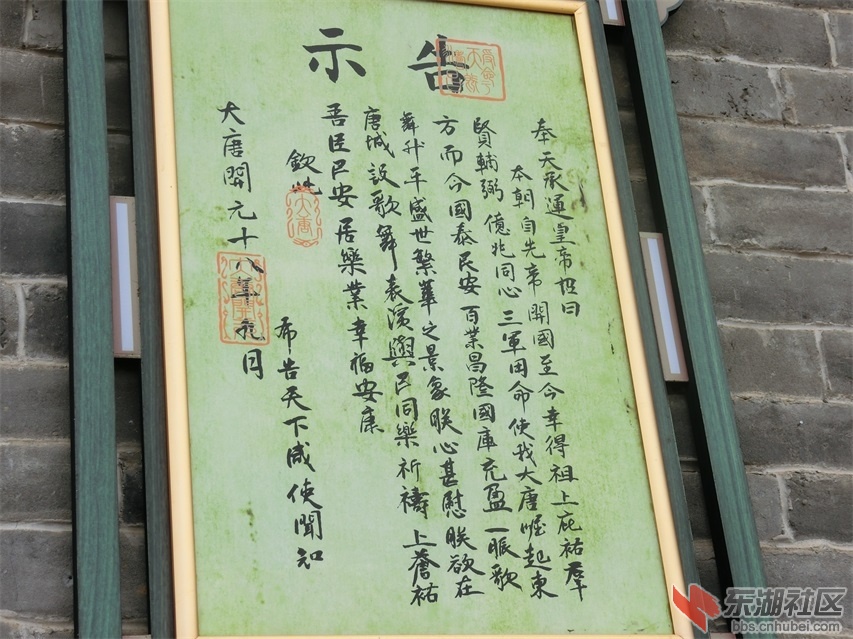 告示
奉天承運皇帝詔曰
本朝自先帝開國至今幸得祖上庇祐羣
賢輔弼億兆同心三軍用命使我大唐崛起東
方而今國泰民安百業昌隆國庫充盈一賑歌
舞升平盛世繁華之景象朕心甚慰朕欲在
唐城設歌舞表演與民同樂祈禱上蒼祐
吾臣民安居樂業幸福安康
欽此
布告天下咸使聞知
大唐開元十八年九月
大唐
东湖社区
bbs.cnhubei.com